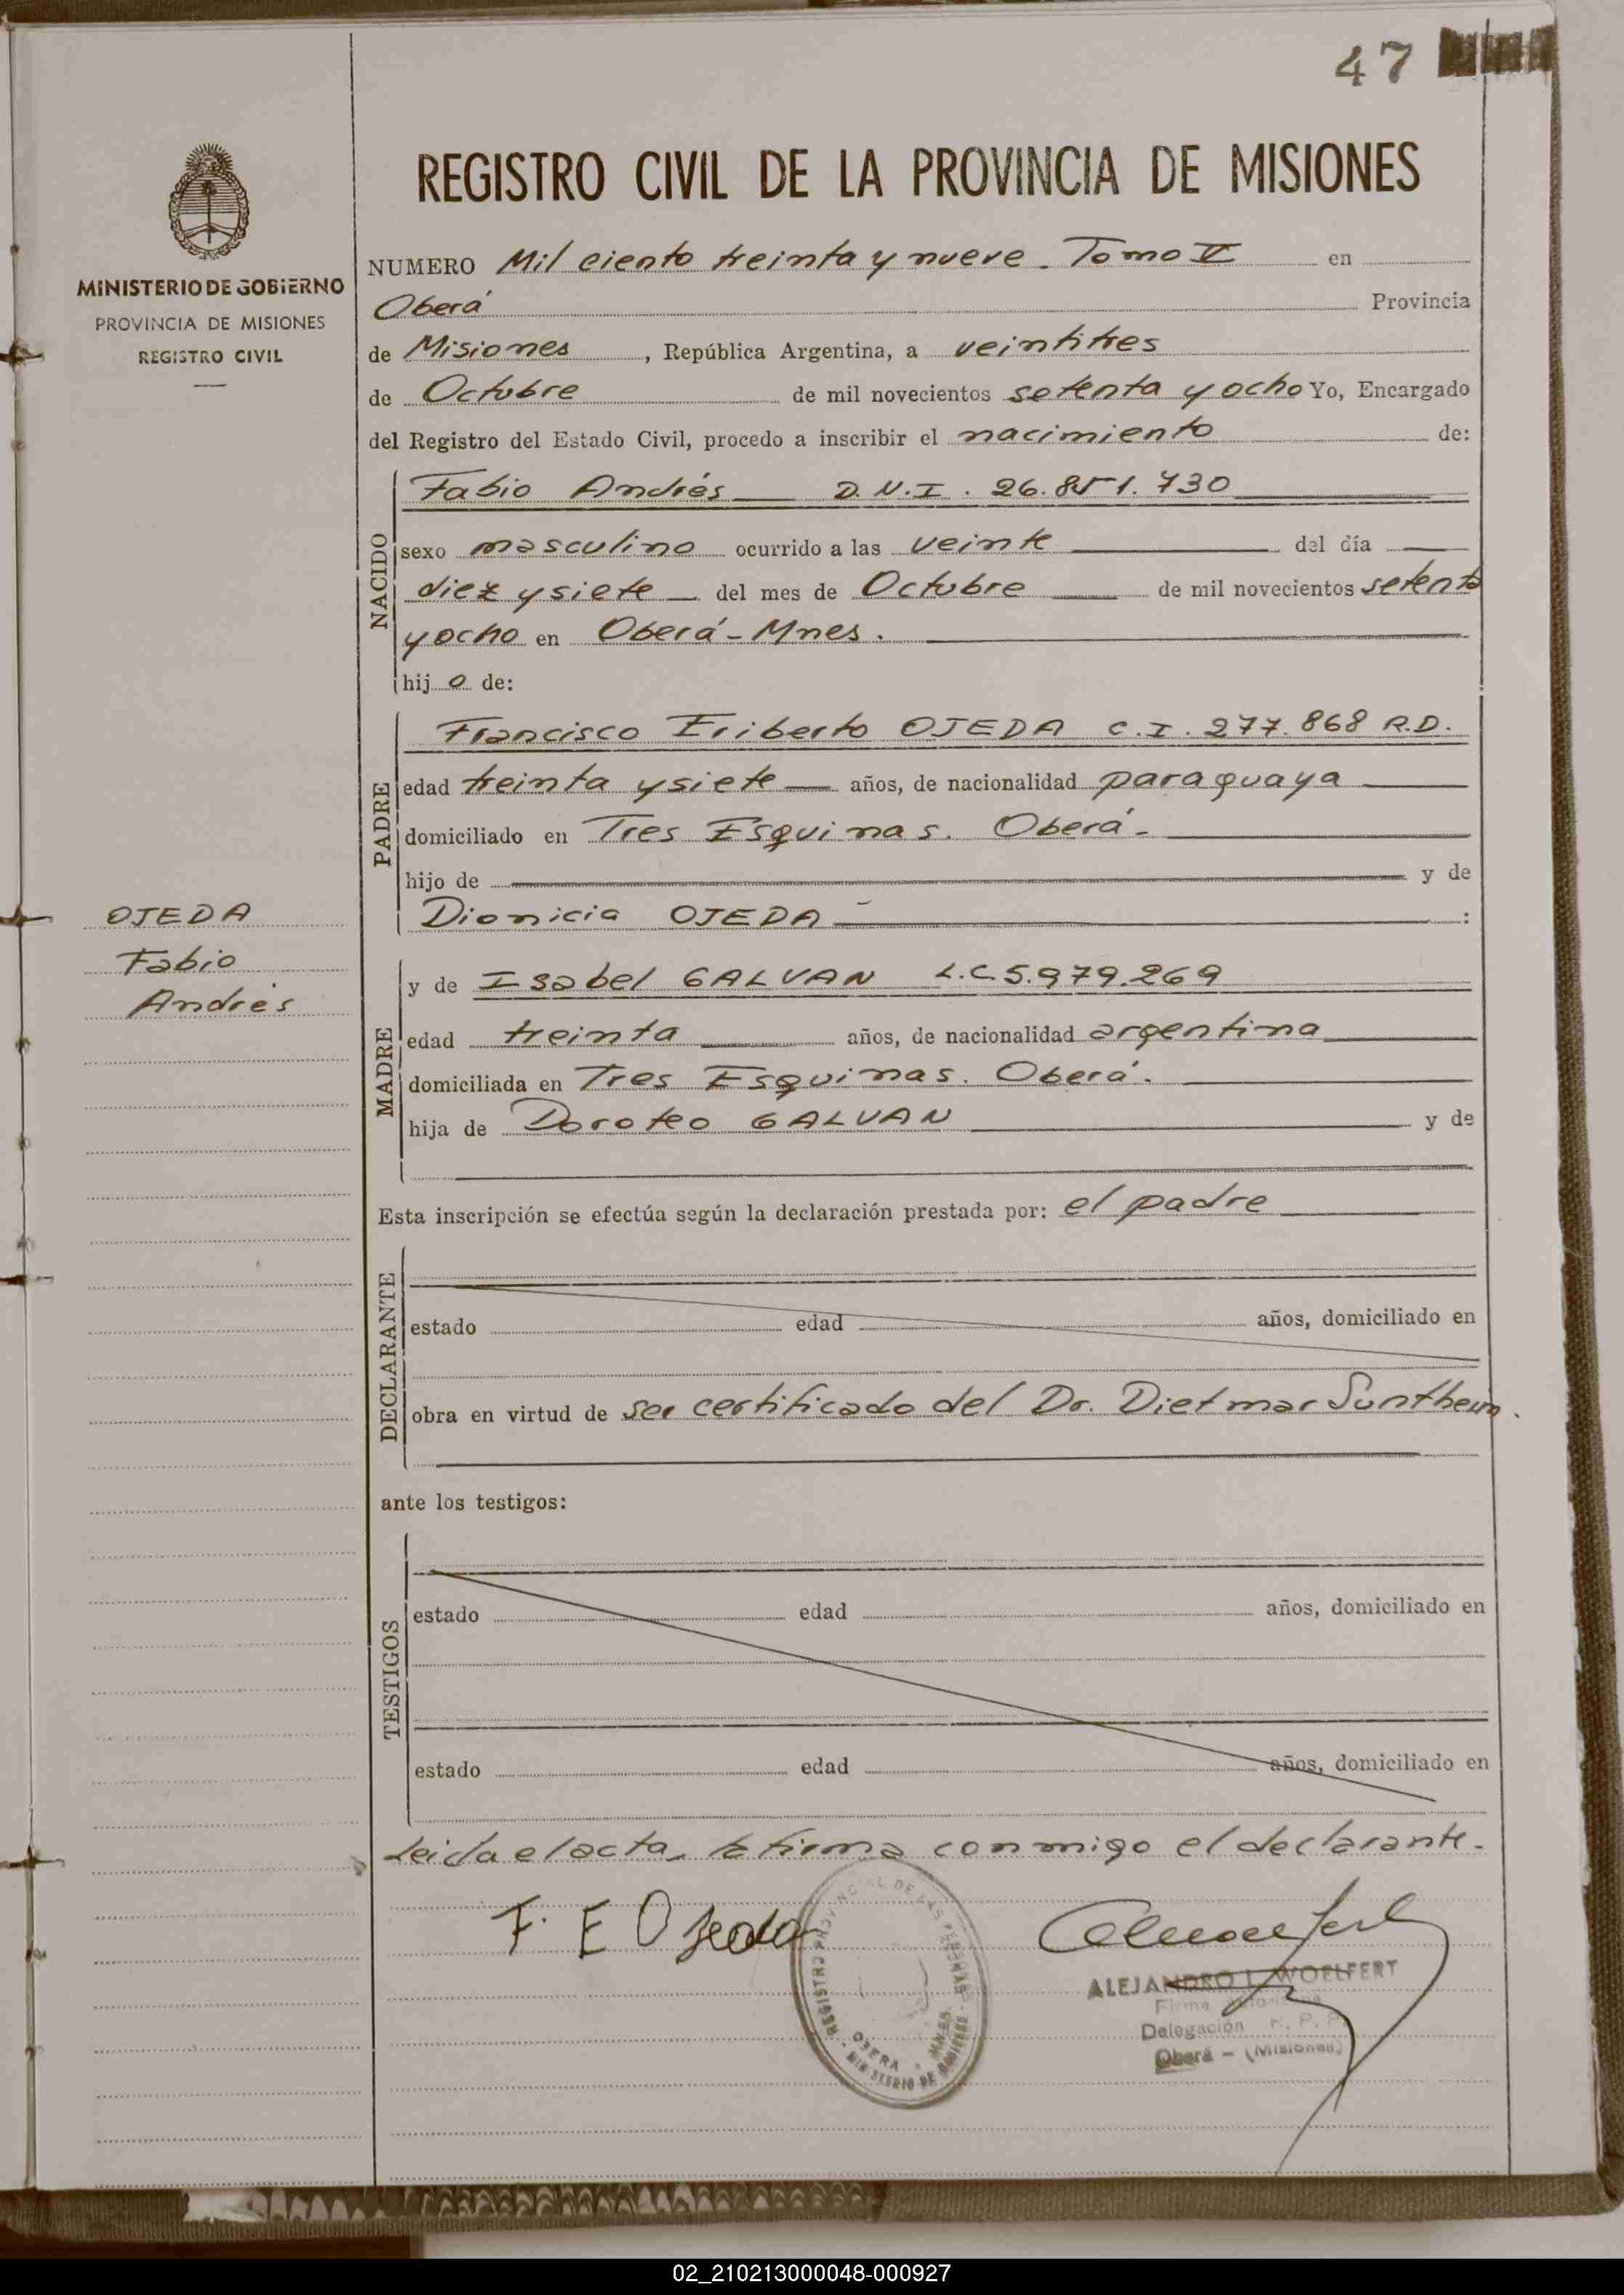 47
REGISTRO CIVIL DE LA PROVINCIA DE MISIONES
MINISTERIO DE GOBIERNO
PROVINCIA DE MISIONES
REGISTRO CIVIL
NUMERO Mil ciento treinta y nueve. Tomo V en
Oberá Provincia
de Misiones, República Argentina, a veintitres
de Octubre de mil novecientos setenta y ocho Yo, Encargado
del Registro del Estado Civil, procedo a inscribir el nacimiento de:
NACIDO
Fabio Andrés D.N.I. 26.851.730
sexo masculino ocurrido a las veinte del día
diez y siete del mes de Octubre de mil novecientos setenta
y ocho en Oberá-Mnes.
hijo de:
PADRE
Francisco Eriberto OJEDA C.I. 277.868 R.D.
edad treinta y siete años, de nacionalidad paraguaya
domiciliado en Tres Esquinas. Oberá-
hijo de y de
Dionicia OJEDA :
OJEDA
Fabio
Andrés
MADRE
y de Isabel GALVAN L.C 5.979.269
edad treinta años, de nacionalidad argentina
domiciliada en Tres Esquinas. Oberá.
hija de Doroteo GALVAN y de
Esta inscripción se efectúa según la declaración prestada por: el padre
DECLARANTE
estado edad años, domiciliado en
obra en virtud de ser certificado del Dr. Dietmar Suntheim.
ante los testigos:
TESTIGOS
estado edad años, domiciliado en
estado edad años, domiciliado en
Leida el acta, la firma conmigo el declarante.
F. E Ojeda
REGISTRO PROVINCIAL DE LAS PERSONAS
OBERA - MNES.
MINISTERIO DE GOBIERNO
ALEJANDRO L. WOELFERT
Firma Autorizada
Delegación R. P. P.
Oberá - (Misiones)
02_210213000048-000927